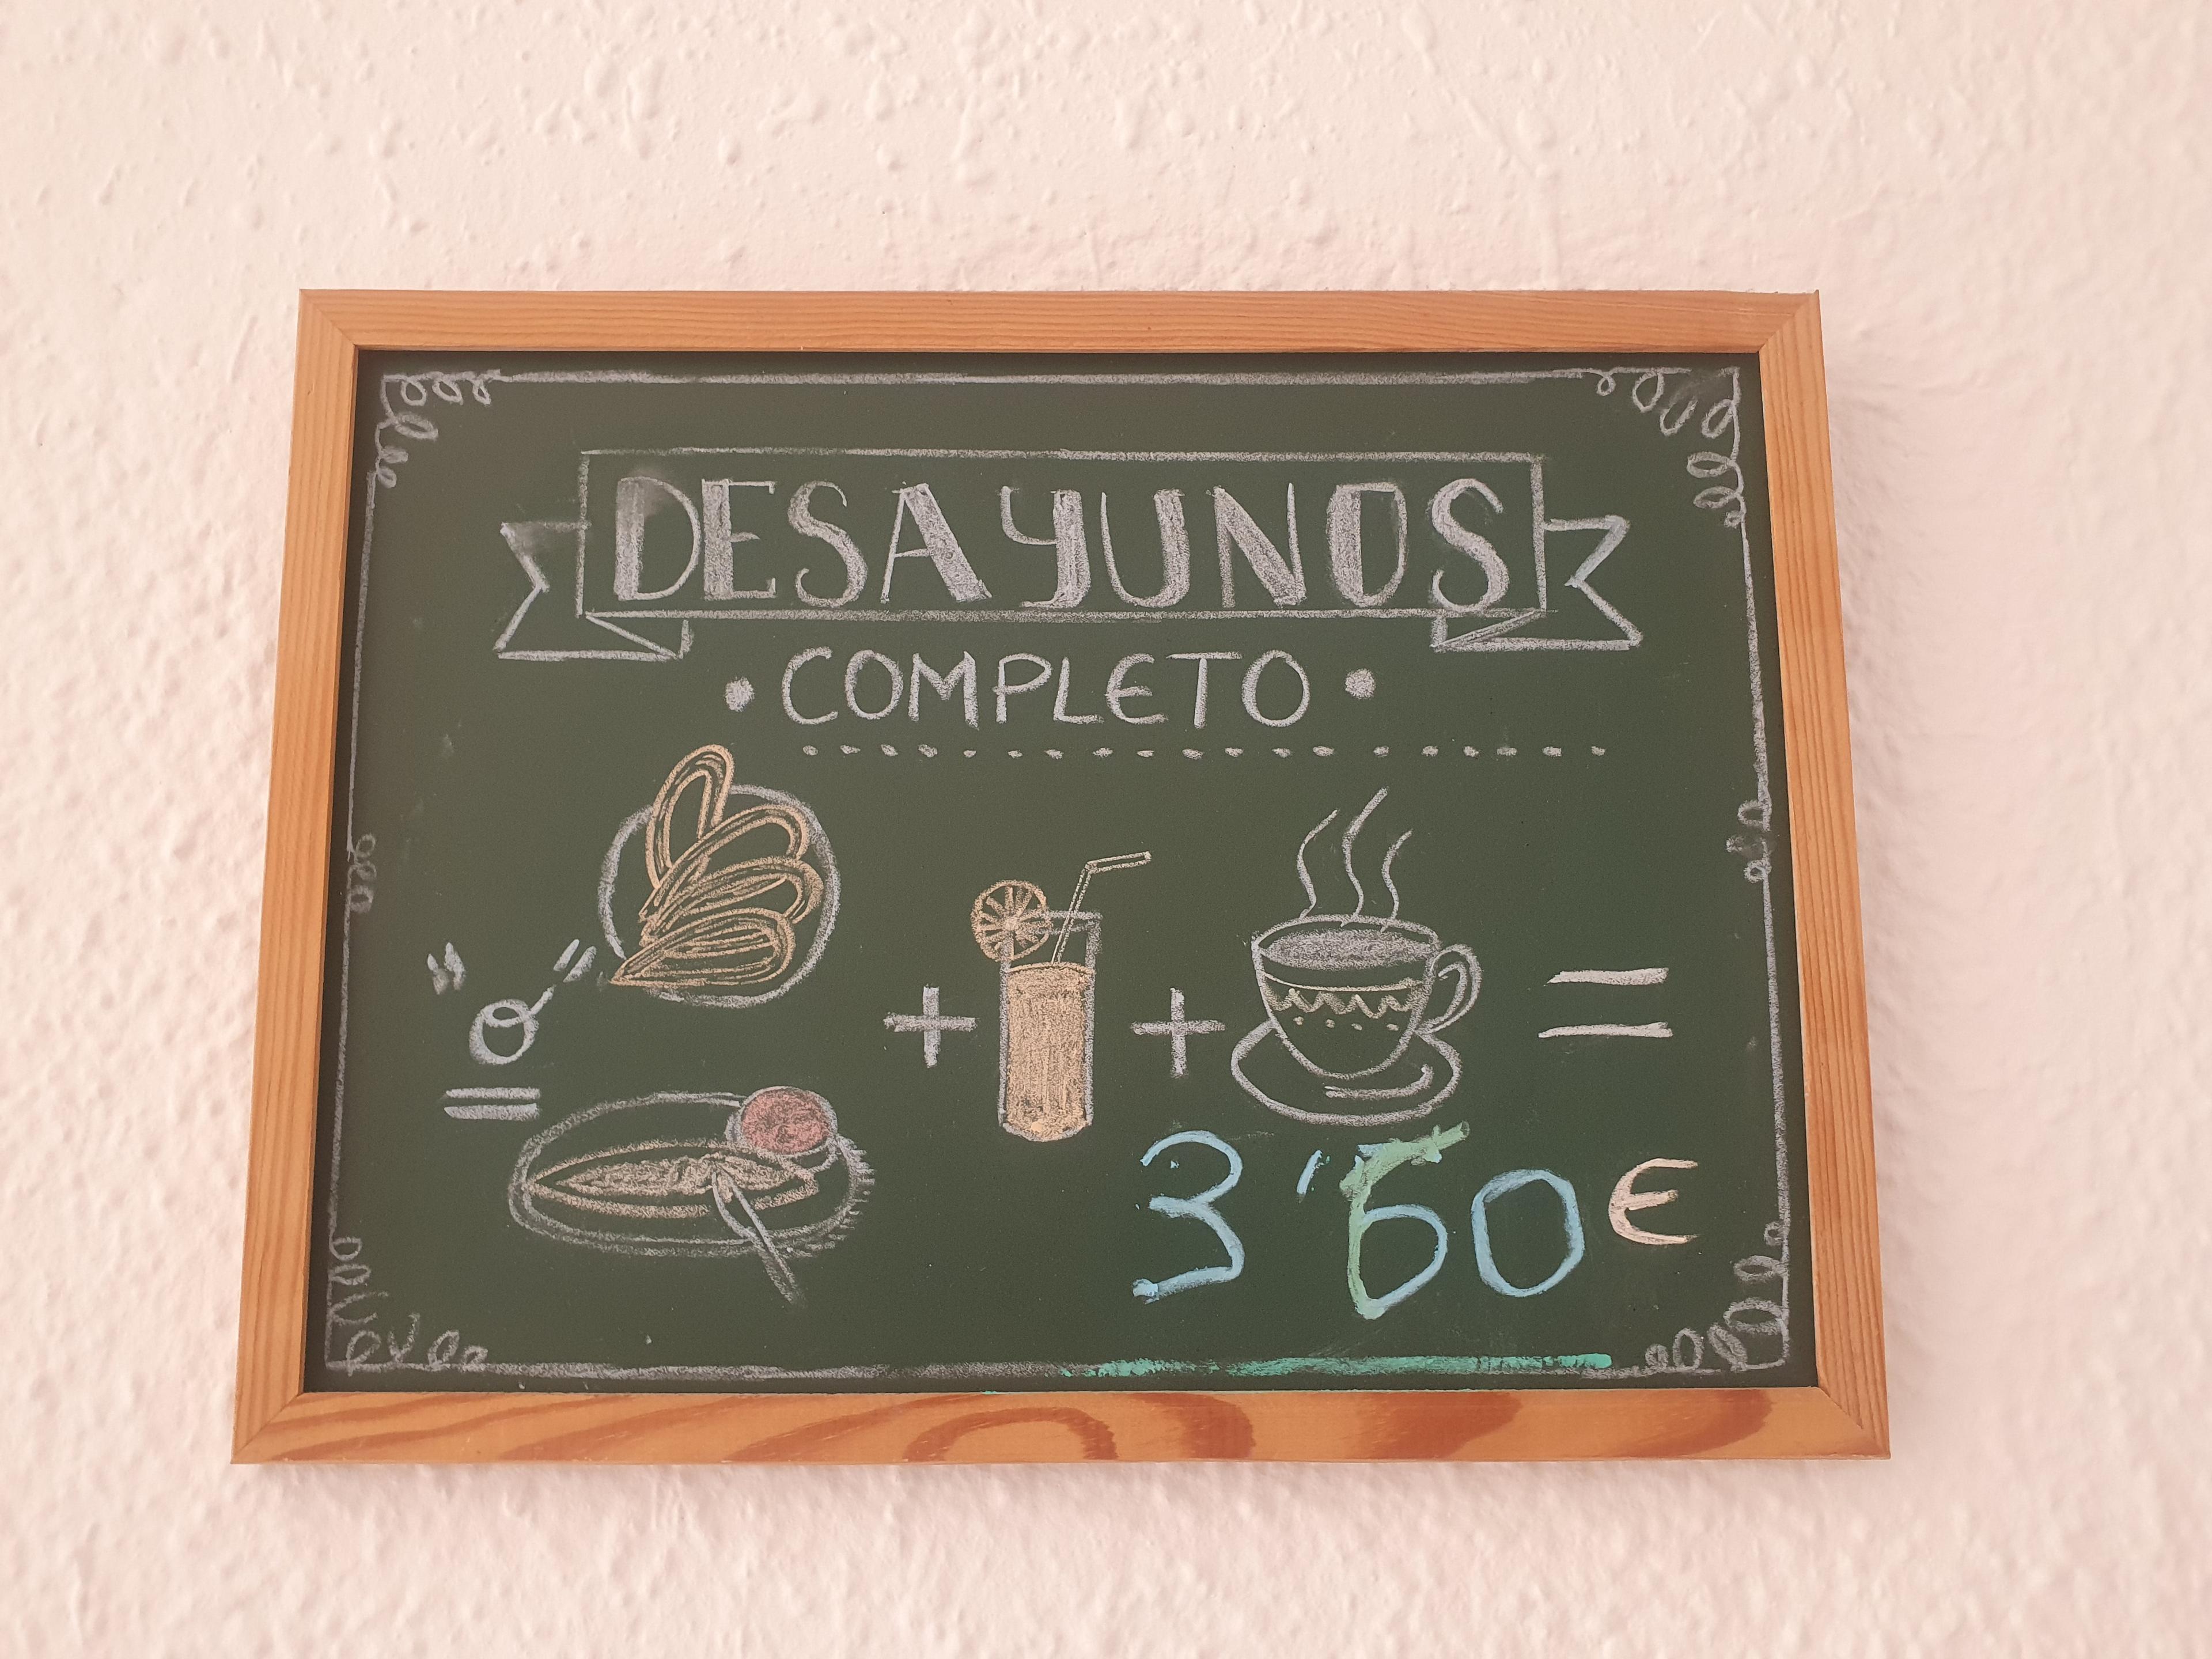 DESAYUNOS
• COMPLETO •
"o"
+ + =
3'60€